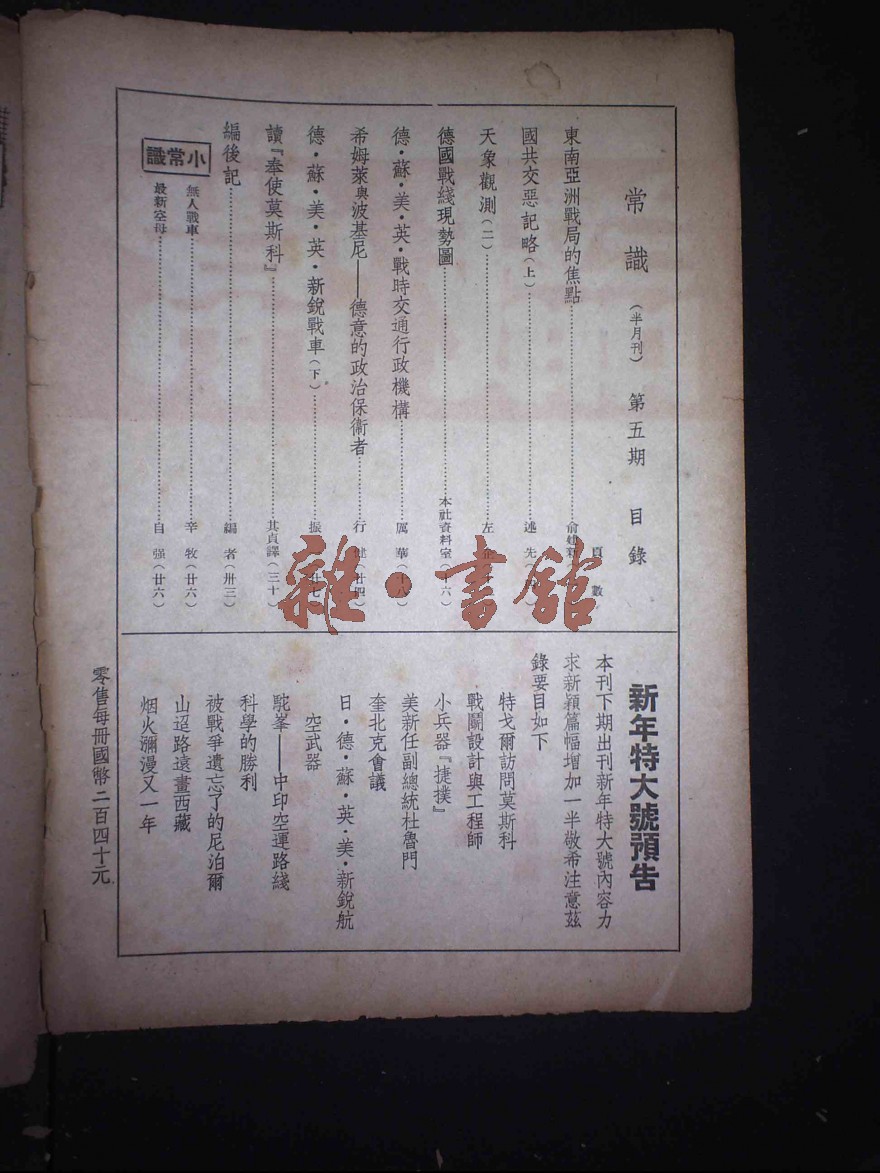 常識 (半月刊) 第五期 目錄
頁數
東南亞洲戰局的焦點
國共交惡記略(上) 述先
天象觀測(二) 左
德國戰綫現勢圖 本社資料室
德·蘇·美·英·戰時交通行政機構 厲華(十八)
希姆萊與波基尼——德意的政治保衞者 行健(廿四)
德·蘇·美·英·新銳戰車(下) 振
讀『奉使莫斯科』 其貞譯(三十)
編後記 編者(卅三)
小常識
無人戰車 辛牧(廿六)
最新空母 自强(廿六)
新年特大號預告
本刊下期出刊新年特大號內容力
求新穎篇幅增加一半敬希注意茲
錄要目如下
特戈爾訪問莫斯科
戰鬭設計與工程師
小兵器『捷撲』
美新任副總統杜魯門
奎北克會議
日·德·蘇·英·美·新銳航
空武器
駝峯——中印空運路綫
科學的勝利
被戰爭遺忘了的尼泊爾
山迢路遠畫西藏
烟火瀰漫又一年
零售每冊國幣二百四十元
雜·書館